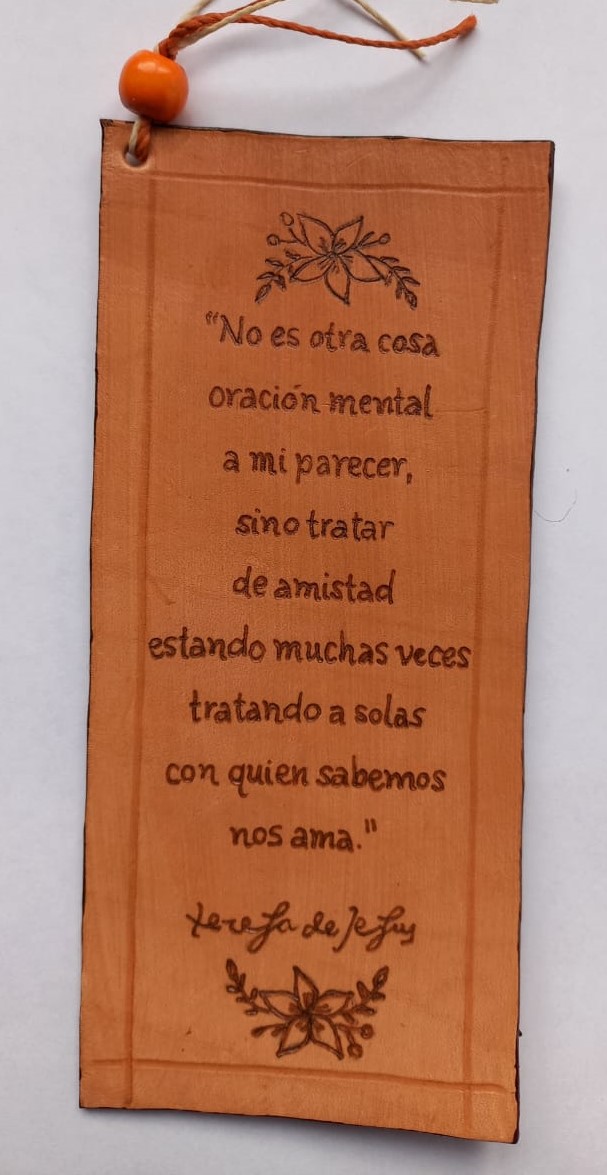 "No es otra cosa
oración mental
a mi parecer,
sino tratar
de amistad
estando muchas veces
tratando a solas
con quien sabemos
nos ama."
teresa de Jesus